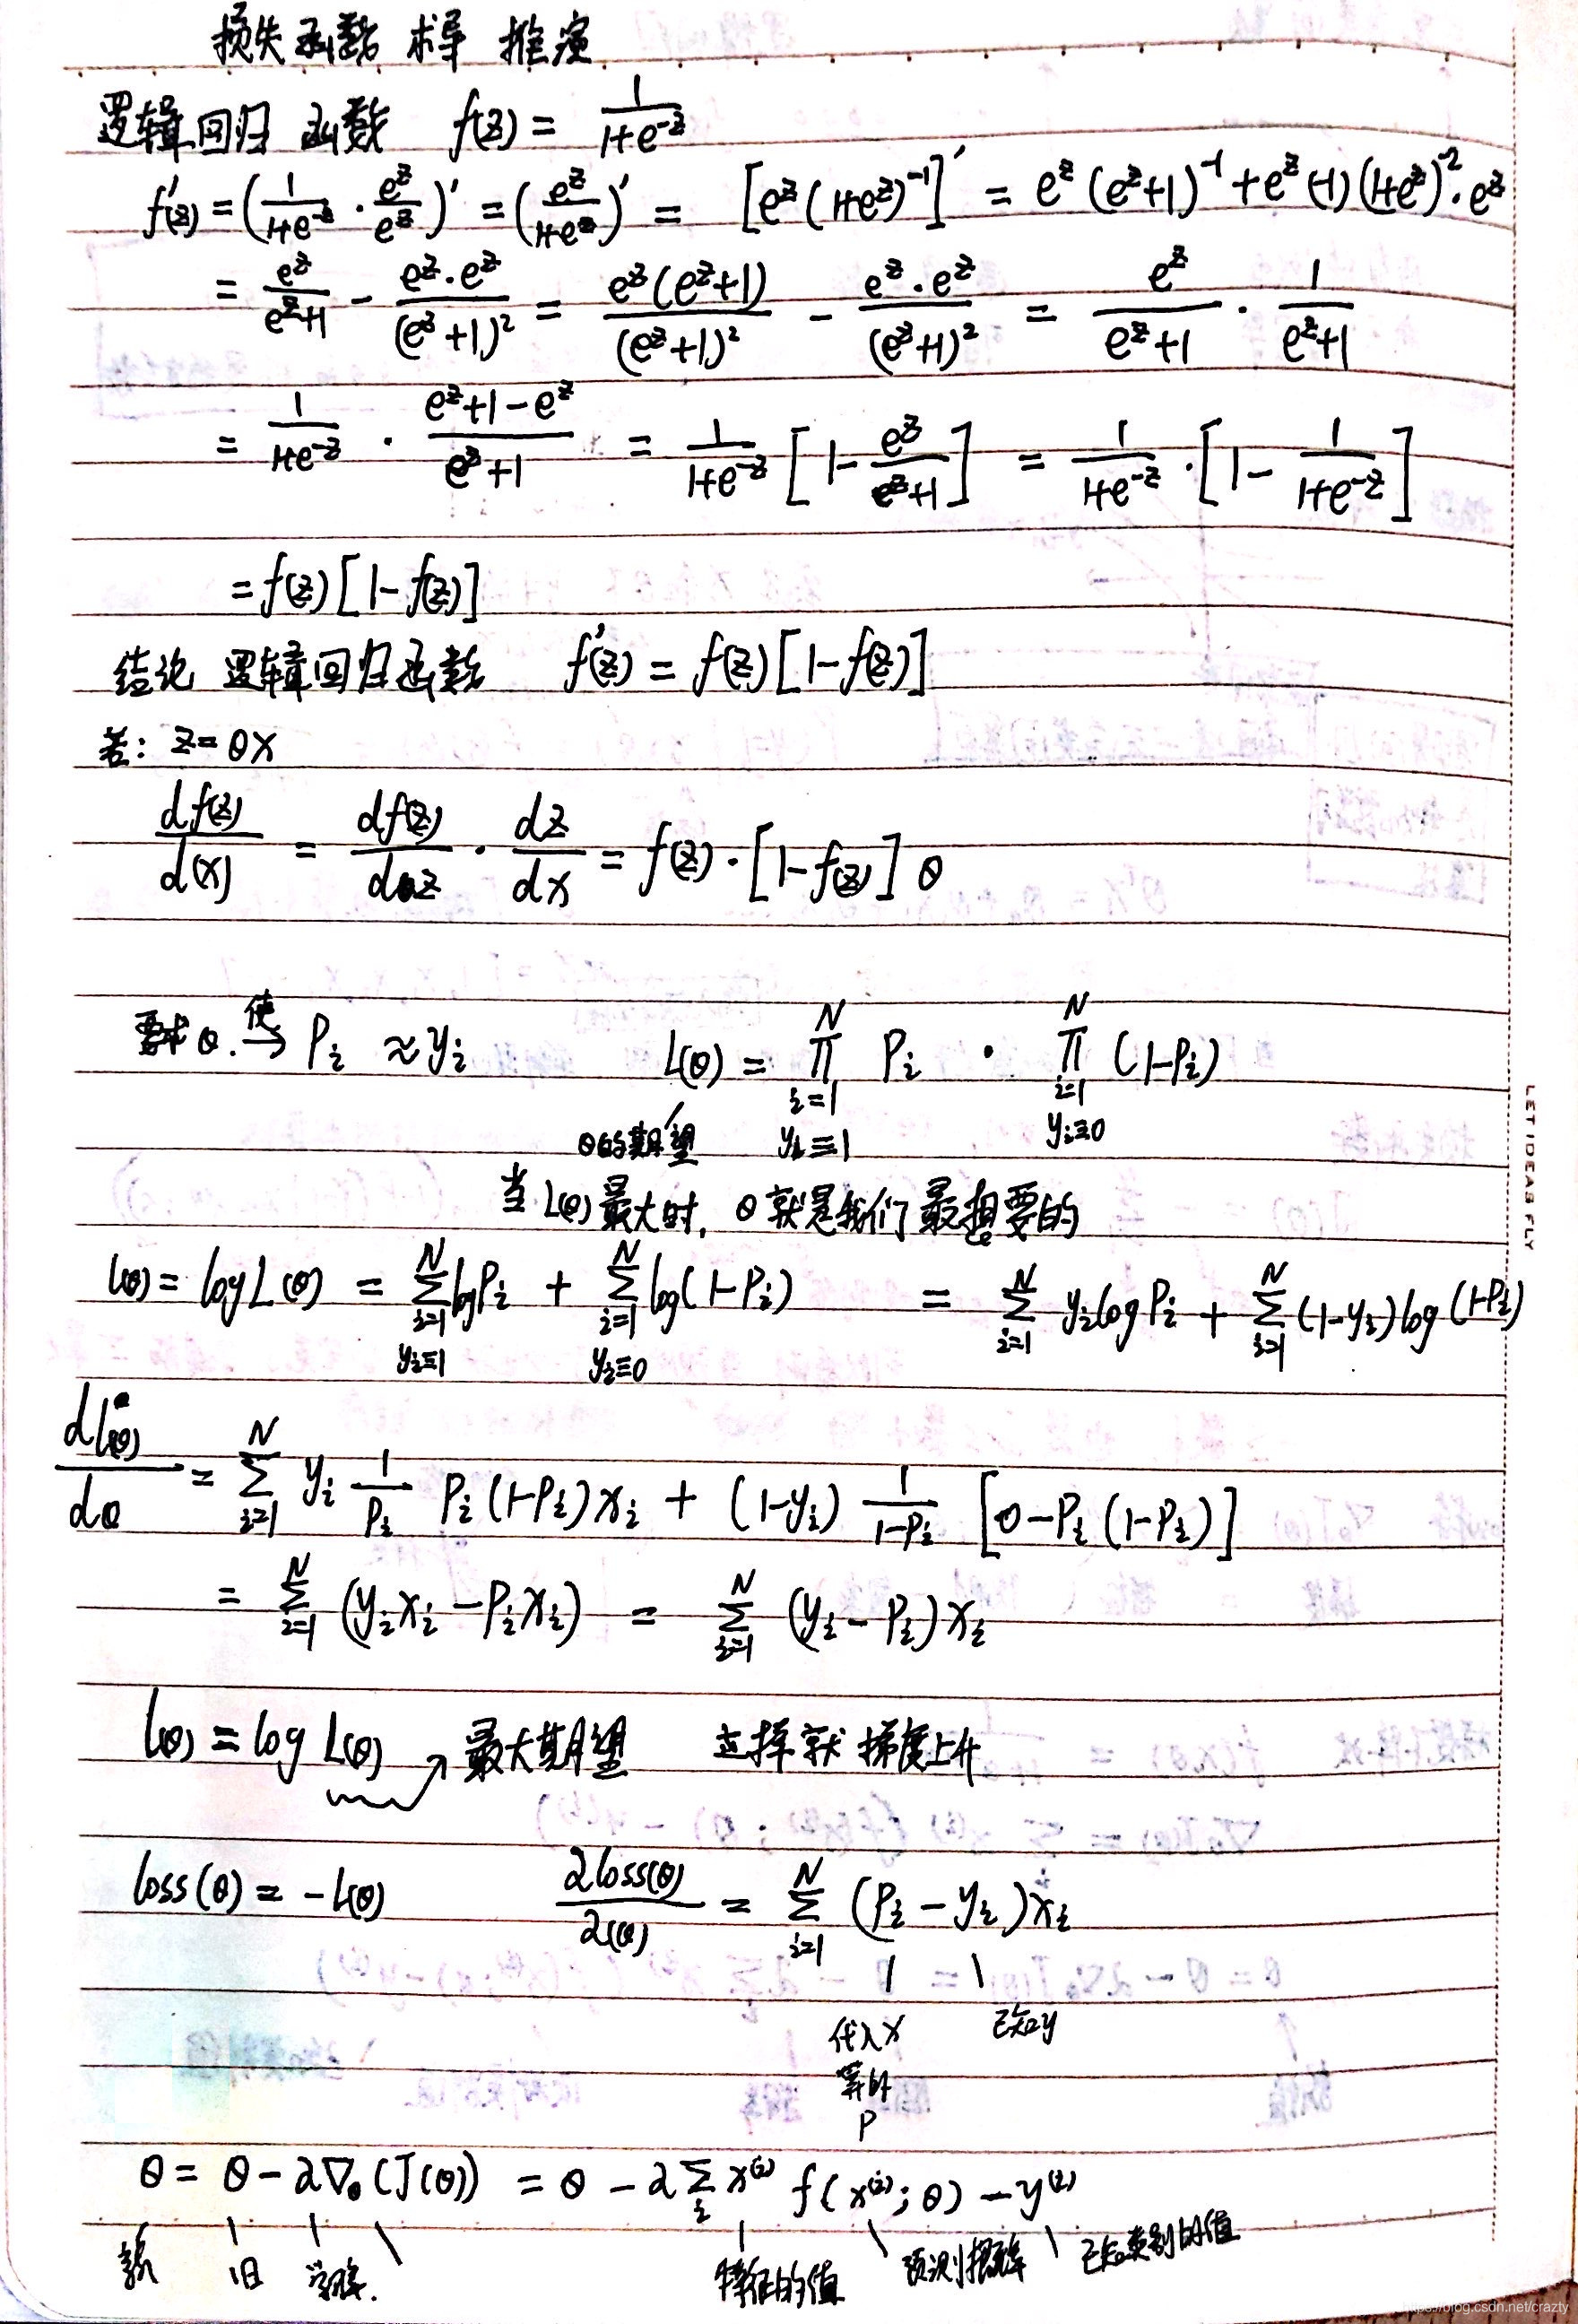 损失函数 求导 推演
逻辑回归 函数 f(z) = 1/(1+e^-z)
f'(z) = (1/(1+e^-z) · e^z/e^z)' = (e^z/(1+e^z))' = [e^z(1+e^z)^-1]' = e^z(e^z+1)^-1 + e^z(-1)(1+e^z)^-2 · e^z
= e^z/(e^z+1) - e^z·e^z/(e^z+1)^2 = e^z(e^z+1)/(e^z+1)^2 - e^z·e^z/(e^z+1)^2 = e^z/(e^z+1) · 1/(e^z+1)
= 1/(1+e^-z) · (e^z+1-e^z)/(e^z+1) = 1/(1+e^-z) [1 - e^z/(e^z+1)] = 1/(1+e^-z) · [1 - 1/(1+e^-z)]
= f(z)[1-f(z)]
结论 逻辑回归函数 f'(z) = f(z)[1-f(z)]
若: z=θx
df(z)/d(x) = df(z)/dz · dz/dx = f(z)·[1-f(z)]θ
要求θ. 使→ P_i ≈ y_i L(θ) = ∏_{i=1, y_i≡1}^N P_i · ∏_{i=1, y_i≡0}^N (1-P_i)
θ的期望
当 L(θ) 最大时, θ就是我们最想要的
l(θ) = log L(θ) = ∑_{i=1, y_i≡1}^N log P_i + ∑_{i=1, y_i≡0}^N log(1-P_i) = ∑_{i=1}^N y_i log P_i + ∑_{i=1}^N (1-y_i) log(1-P_i)
dl(θ)/dθ = ∑_{i=1}^N y_i 1/P_i P_i(1-P_i)x_i + (1-y_i) 1/(1-P_i) [0-P_i(1-P_i)]
= ∑_{i=1}^N (y_i x_i - P_i x_i) = ∑_{i=1}^N (y_i - P_i)x_i
l(θ) = log L(θ) 最大期望 梯度上升
loss(θ) = -L(θ) ∂loss(θ)/∂(θ) = ∑_{i=1}^N (P_i - y_i)x_i
代入x 已知y
算的
P
θ = θ - α∇_θ(J(θ)) = θ - α∑_i x^(i) f(x^(i);θ) - y^(i)
新 旧 特征的值 预测概率 已知类别的值
LET IDEAS FLY
https://blog.csdn.net/crazty